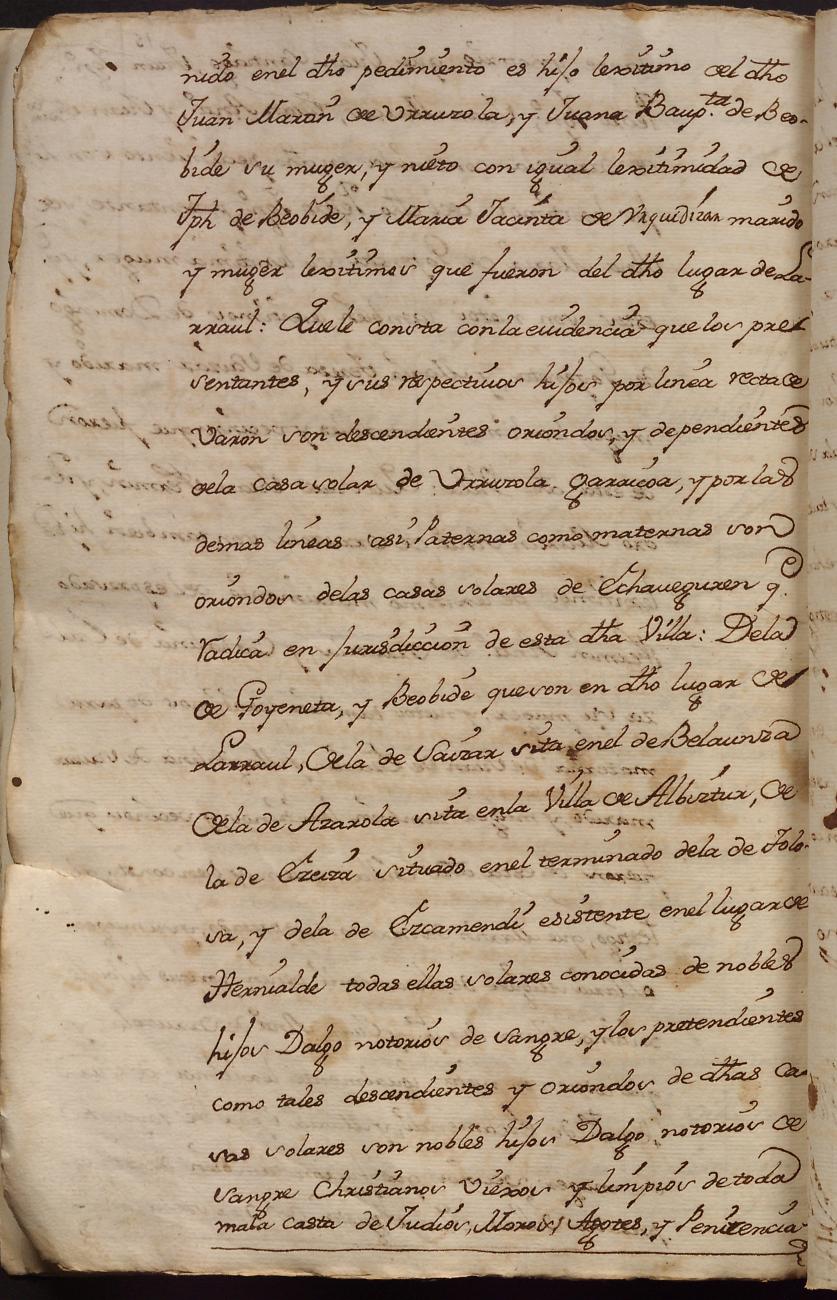 nido enel dho pedimiento es hijo lexitimo del dho
Juan Martin de Urruzola, y Juana Baup.ta de Beo-
bide su muger, y nieto con igual lexitimidad de
Jph de Beobide, y Maria Jacinta de Urquidizar marido
y muger lexitimos que fueron del dho lugar de La-
rraul: Quele consta conla euidencia que los pre
sentantes, y sus respectiuos hijos por linea recta de
varon son descendientes oriundos, y dependientes
dela casa solar de Urruzola garaicoa, y por las
demas lineas asi Paternas como maternas son
oriundos delas casas solares de Echaueguren q.e
radica en jurisdiccion de esta dha Villa: Dela
de Goyeneta, y Beobide que son en dho lugar de
Larraul, Dela de Saizar sita enel de Belaunza
Dela de Azarola sita enla Villa de Albiztur, De
la de Ezeiza situado enel terminado dela de Tolo-
sa, y dela de Ezcamendi esistente enel lugar de
Hernialde todas ellas solares conocidas de nobles
hijos Dalgo notorios de sangre, y los pretendientes
como tales descendientes y oriundos de dhas ca-
sas solares son nobles hijos Dalgo notorios de
sangre Christianos viexos y limpios de toda
mala casta de Judios, Moros, Agotes, y Penitencia